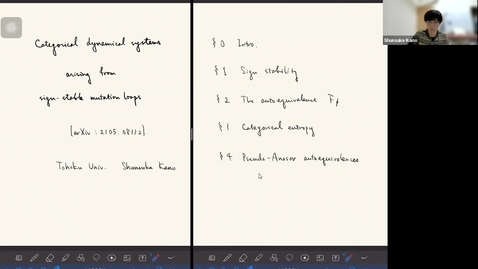 Categorical dynamical systems
arising from
sign-stable mutation loops
[arXiv : 2105.08112]
Tohoku Univ. Shunsuke Kano
§ 0 Intro.
§ 1 Sign stability
§ 2 The autoequivalence F_ϕ
§ 3 Categorical entropy
§ 4 Pseudo-Anosov autoequivalences
Shunsuke Kano